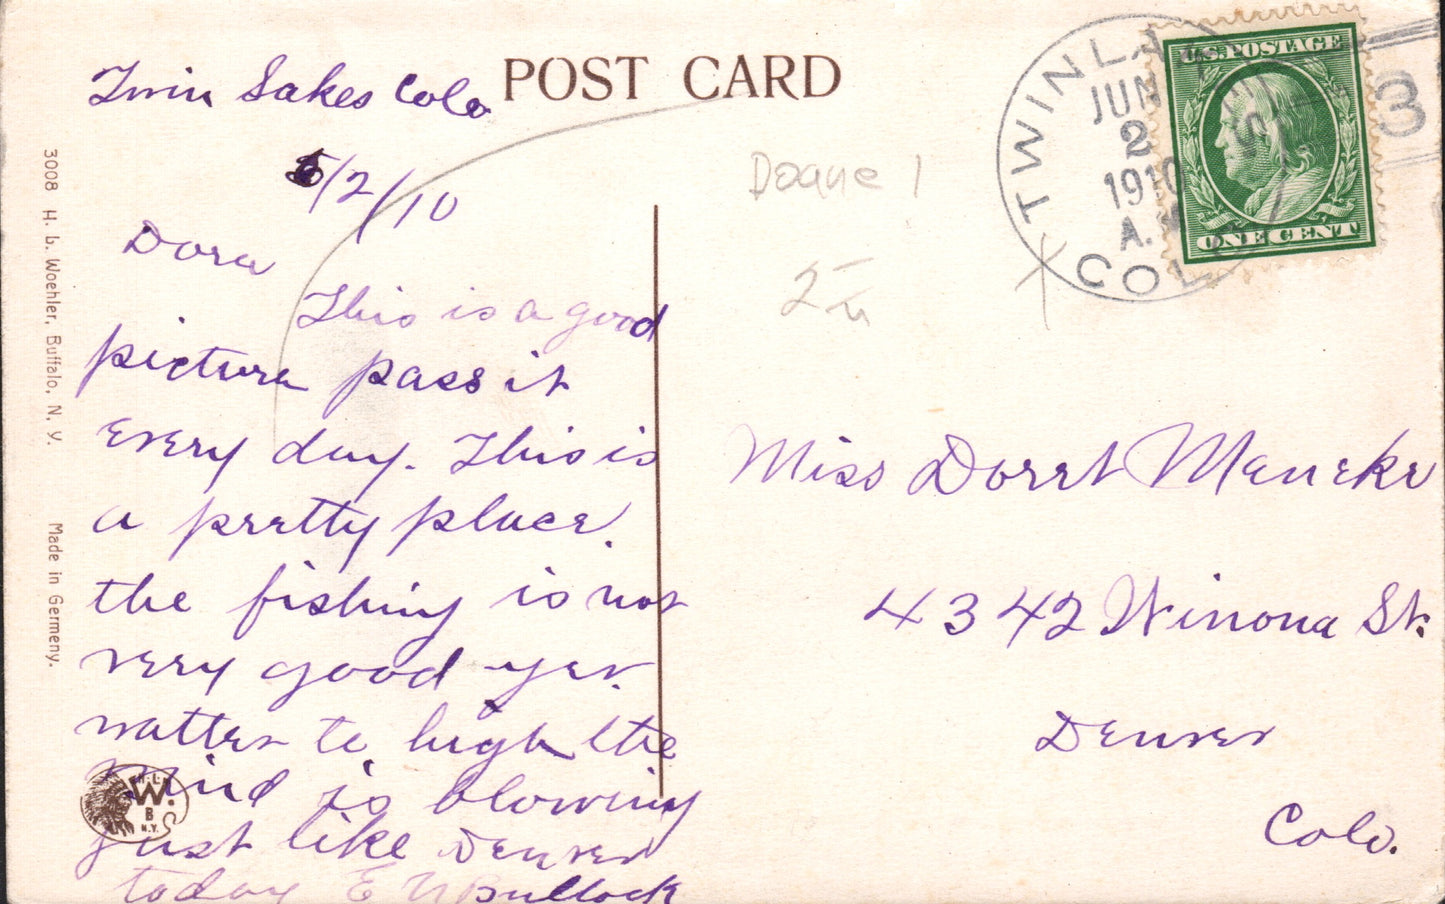 POST CARD
Twin Lakes Colo
6/2/10
Dora
This is a good
picture pass it
every day. This is
a pretty place.
the fishing is not
very good yet.
watter to high the
wind is blowing
just like Denver
today E U Bullock
3008 H. L. Woehler, Buffalo, N. Y. Made in Germeny.
H. L.
W.
B
N.Y.
Doane 1
2
TWIN LAKES
JUN
2
1910
A.M
COLO
3
U.S. POSTAGE
ONE CENT
Miss Dorrt Meneke
4342 Winona St.
Denver
Colo.